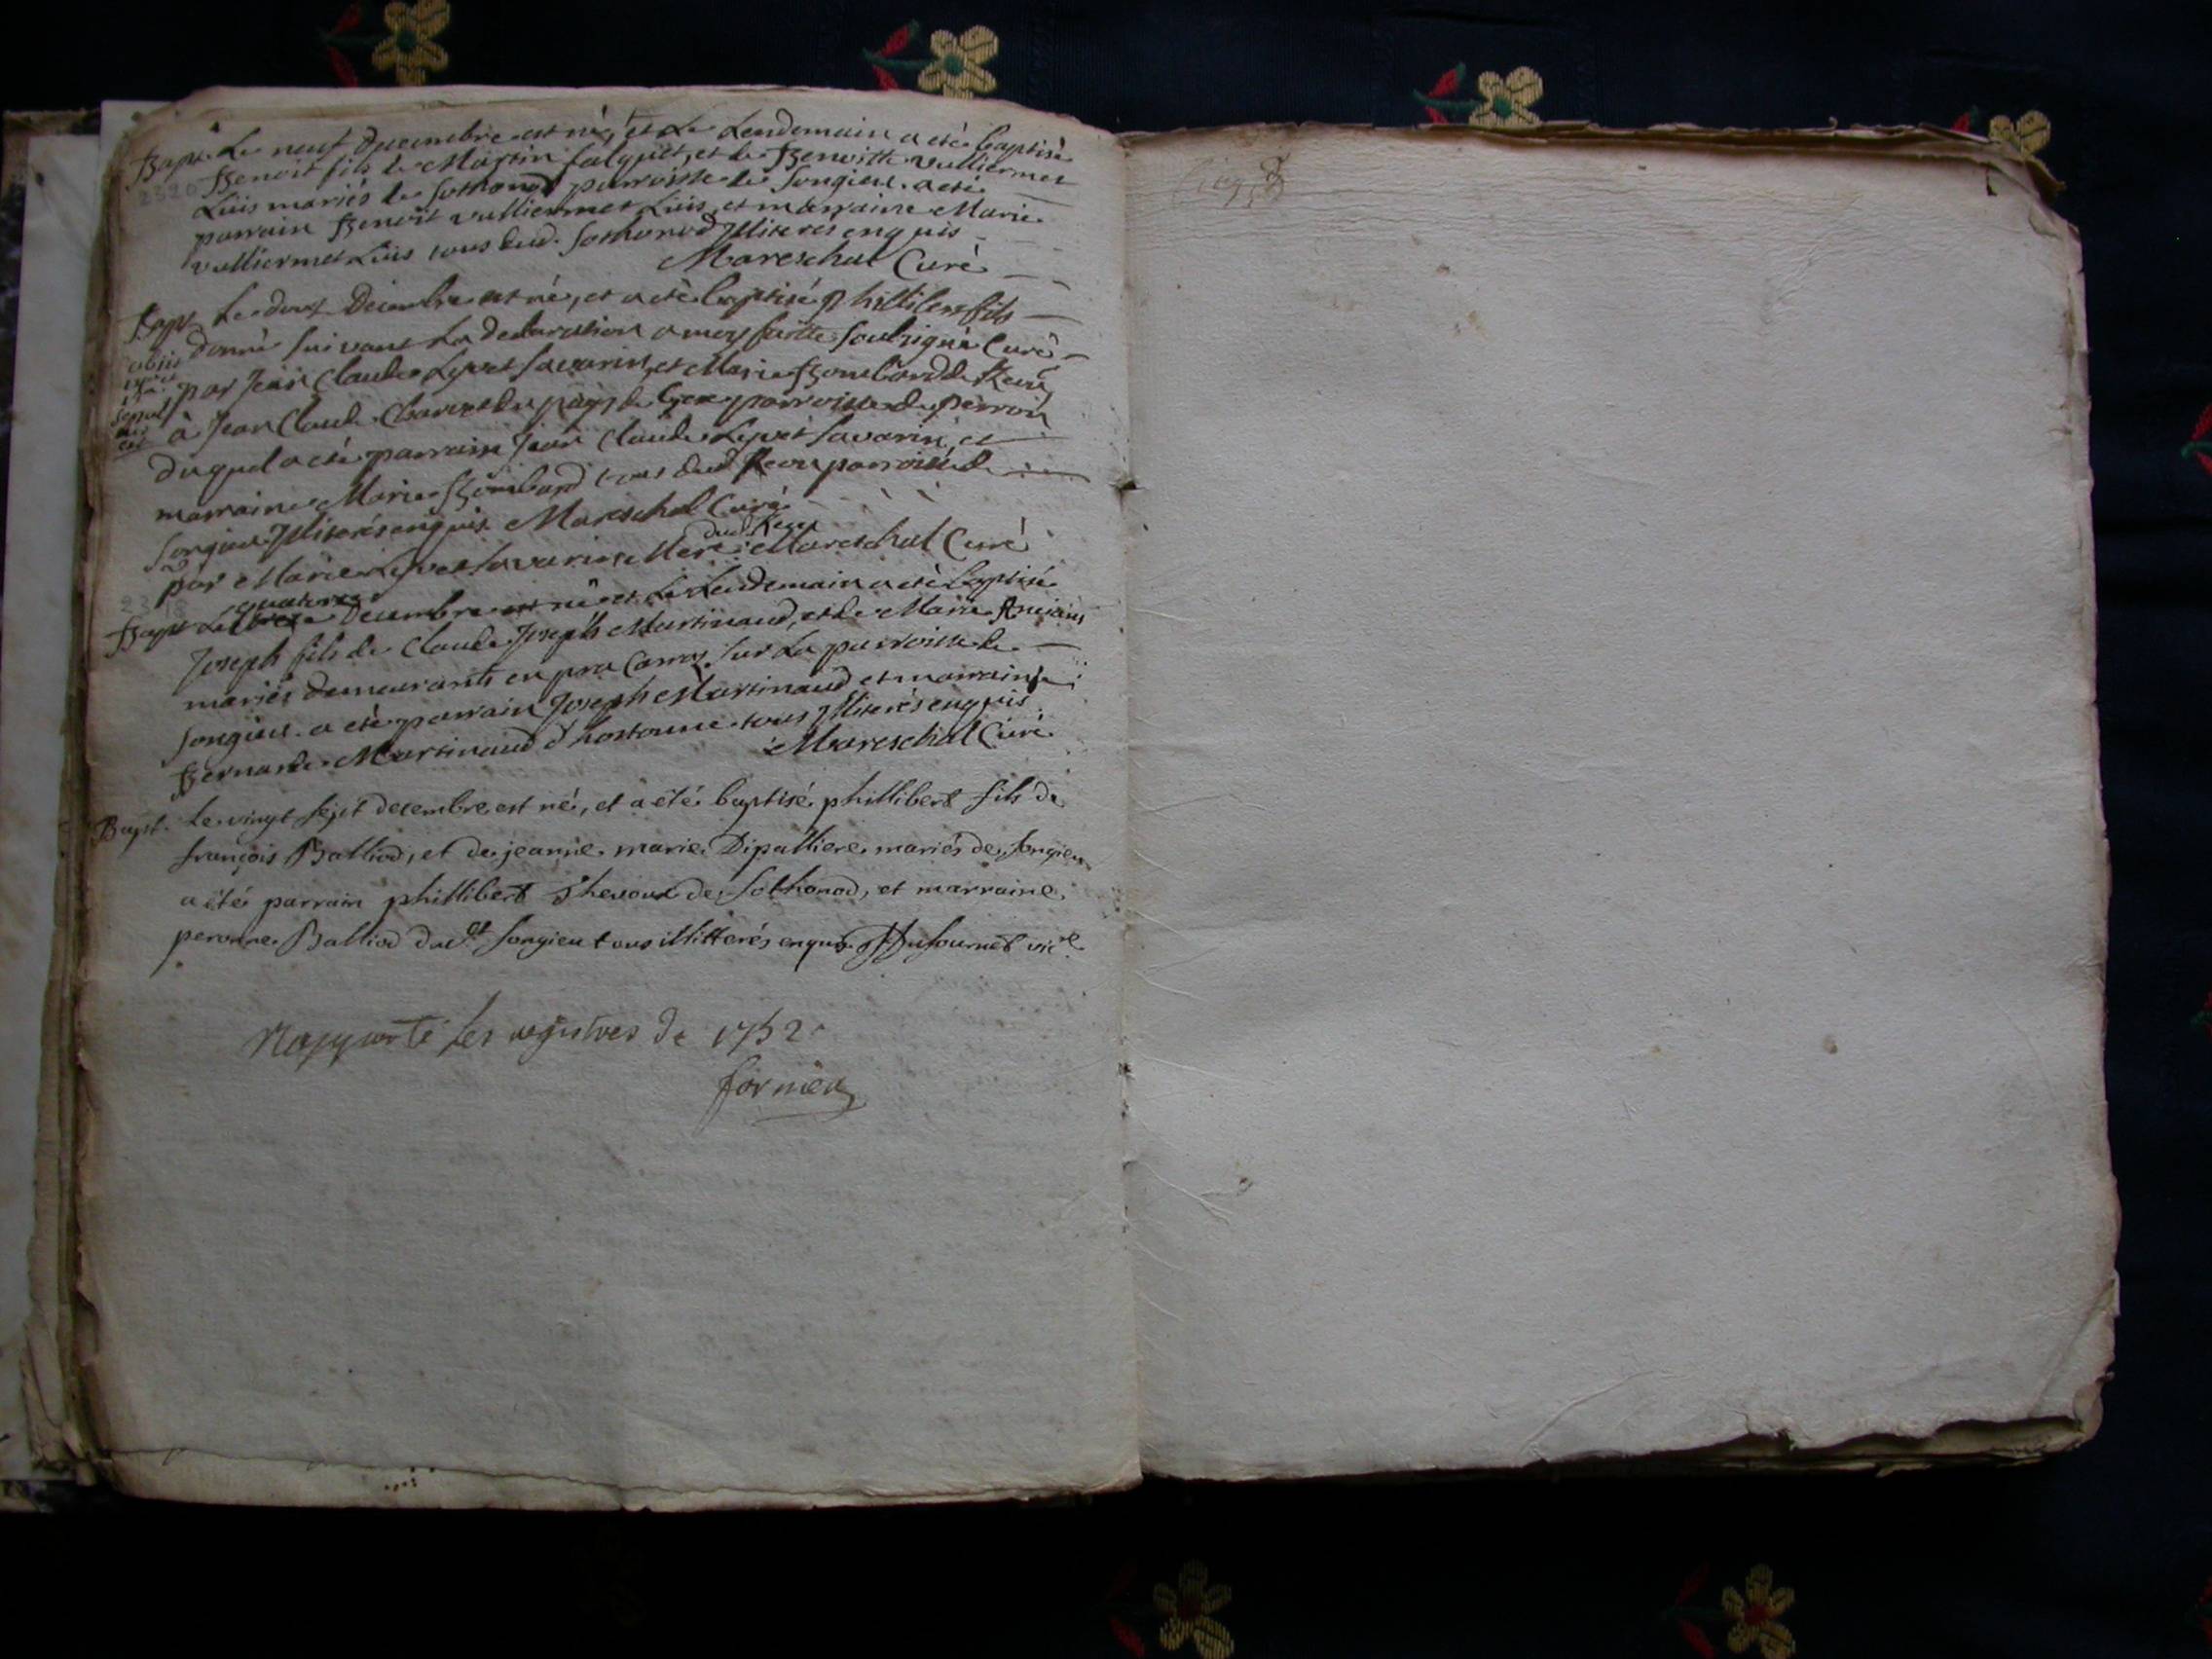 Bapt. Le neuf Decembre est né, et Le Lendemain a eté baptisé
Benoit fils de Martin falquet, et de Benoitte vulliermet
Luis mariés de Sothonod parroisse de Songieu. a eté
parrain Benoit vulliermet Luis, et marraine Marie
vulliermet Luis tous dud. Sothonod Illiterés enquis
Mareschal Curé
Bapt Le douze Decembre est né, et a eté baptisé phillibert fils
donné suivant La declaration a moy faitte soubsigné Curé
par Jean Claude Lyvet Savarin, et Marie Bombard de
à Jean Claude Charvet du pays de Gex parroisse de
duquel a eté parrain Jean Claude Lyvet Savarin, et
marraine Marie Bombard tous dud parroisse de
Songieu Illiterés enquis Mareschal Curé
dud
par Marie Lyvet Savarin Mere Mareschal Curé
2318
quatorze
Bapt Le Decembre est né et Le Lendemain a eté baptisé
Joseph fils de Claude Joseph Martinaud, et de Marie
mariés demeurants en pra Carroz sur La parroisse de
Songieu. a eté parrain Joseph Martinaud et marraine
Bernarde Martinaud d'hostonne tous Illiterés enquis
Mareschal Curé
Bapt. Le vingt sept decembre est né, et a été baptisé phillibert fils de
françois Balliod, et de jeanne marie Dipalliere mariés de Songieu
a été parrain phillibert de Sothonod, et marraine
peronne Balliod dud et Songieu tous illitterés enquis Dufournet vic.e
Rapporté les registres de 1752